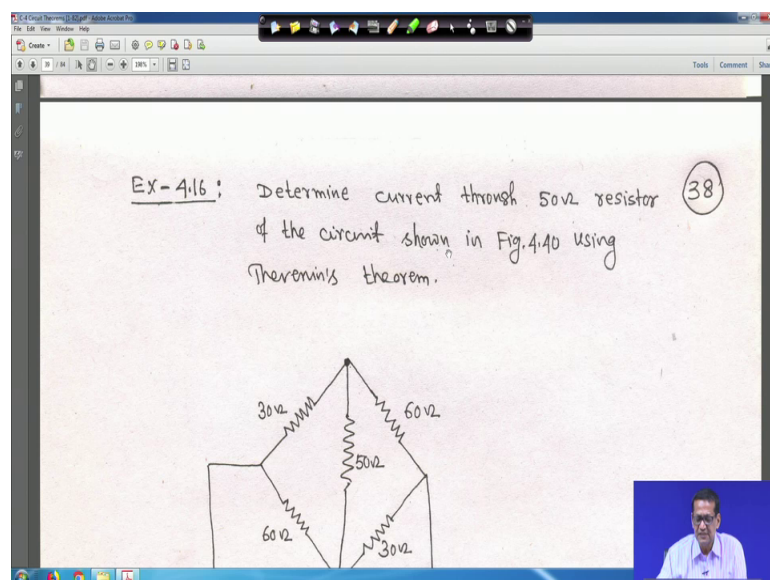 C-4 Circuit Theorems [1-82].pdf - Adobe Acrobat Pro
File Edit View Window Help
Create
39 / 84
198%
Tools Comment Sha
Ex-4.16: Determine current through 50Ω resistor 38
of the circuit shown in Fig.4.40 using
Thevenin's theorem.
30Ω 60Ω
50Ω
60Ω 30Ω